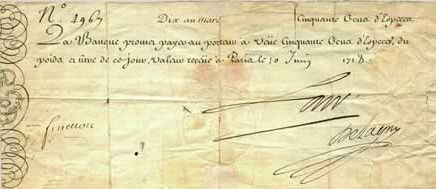 N.° 4967 Dix au marc Cinquante Ecus d'Especes
La Banque promet payer au porteur a veüe Cinquante Ecus d'Especes, du
poids et titre de ce jour, valeur receüe a Paris le 10 Juin 1718